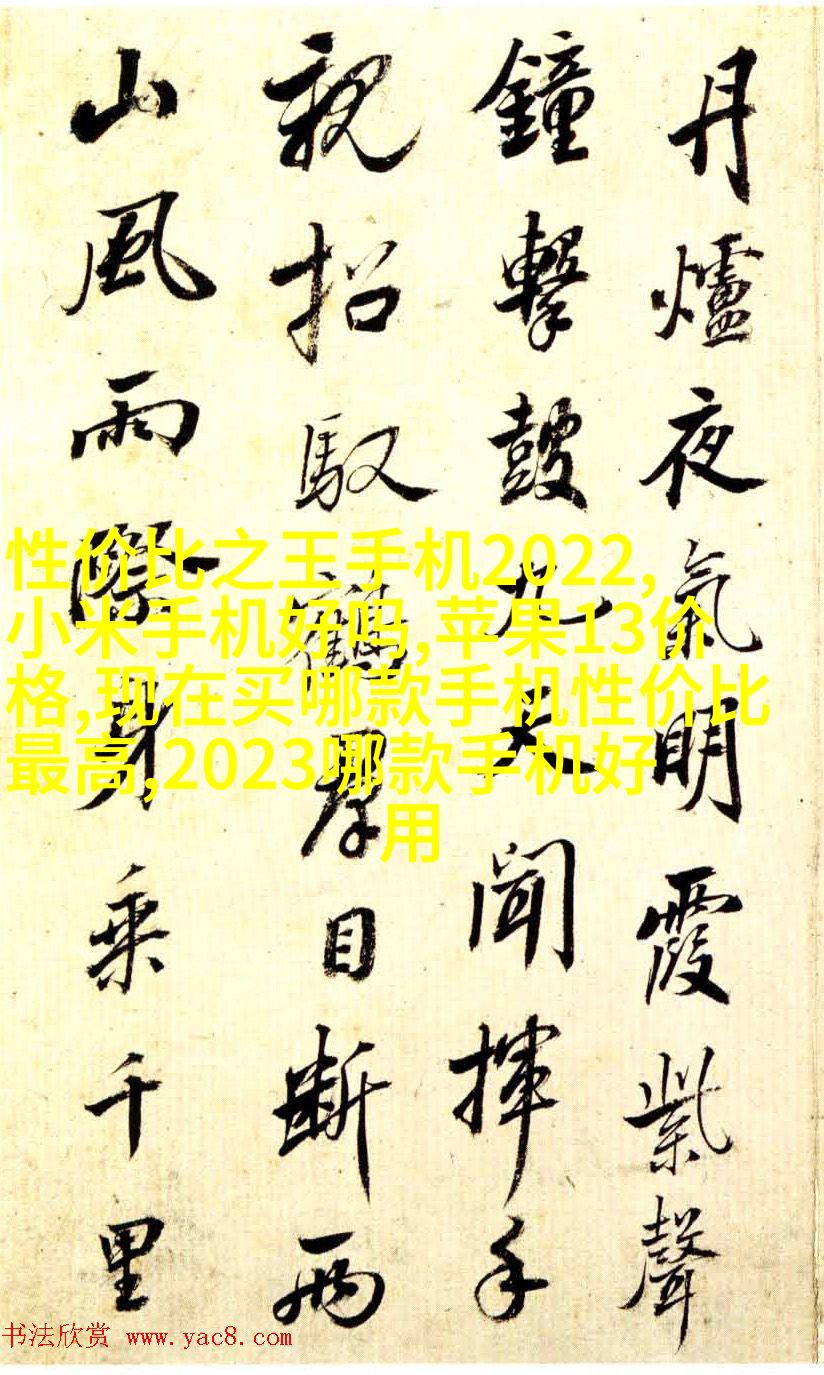 丹爐夜氣明霞紫聲
鐘擊鼓九天聞揮手
親招馭鶴群目断两
山風雨際身乗千里
性价比之王手机2022,
小米手机好吗,苹果13价
格,现在买哪款手机性价比
最高,2023哪款手机好
用
书法欣赏 www.yac8.com